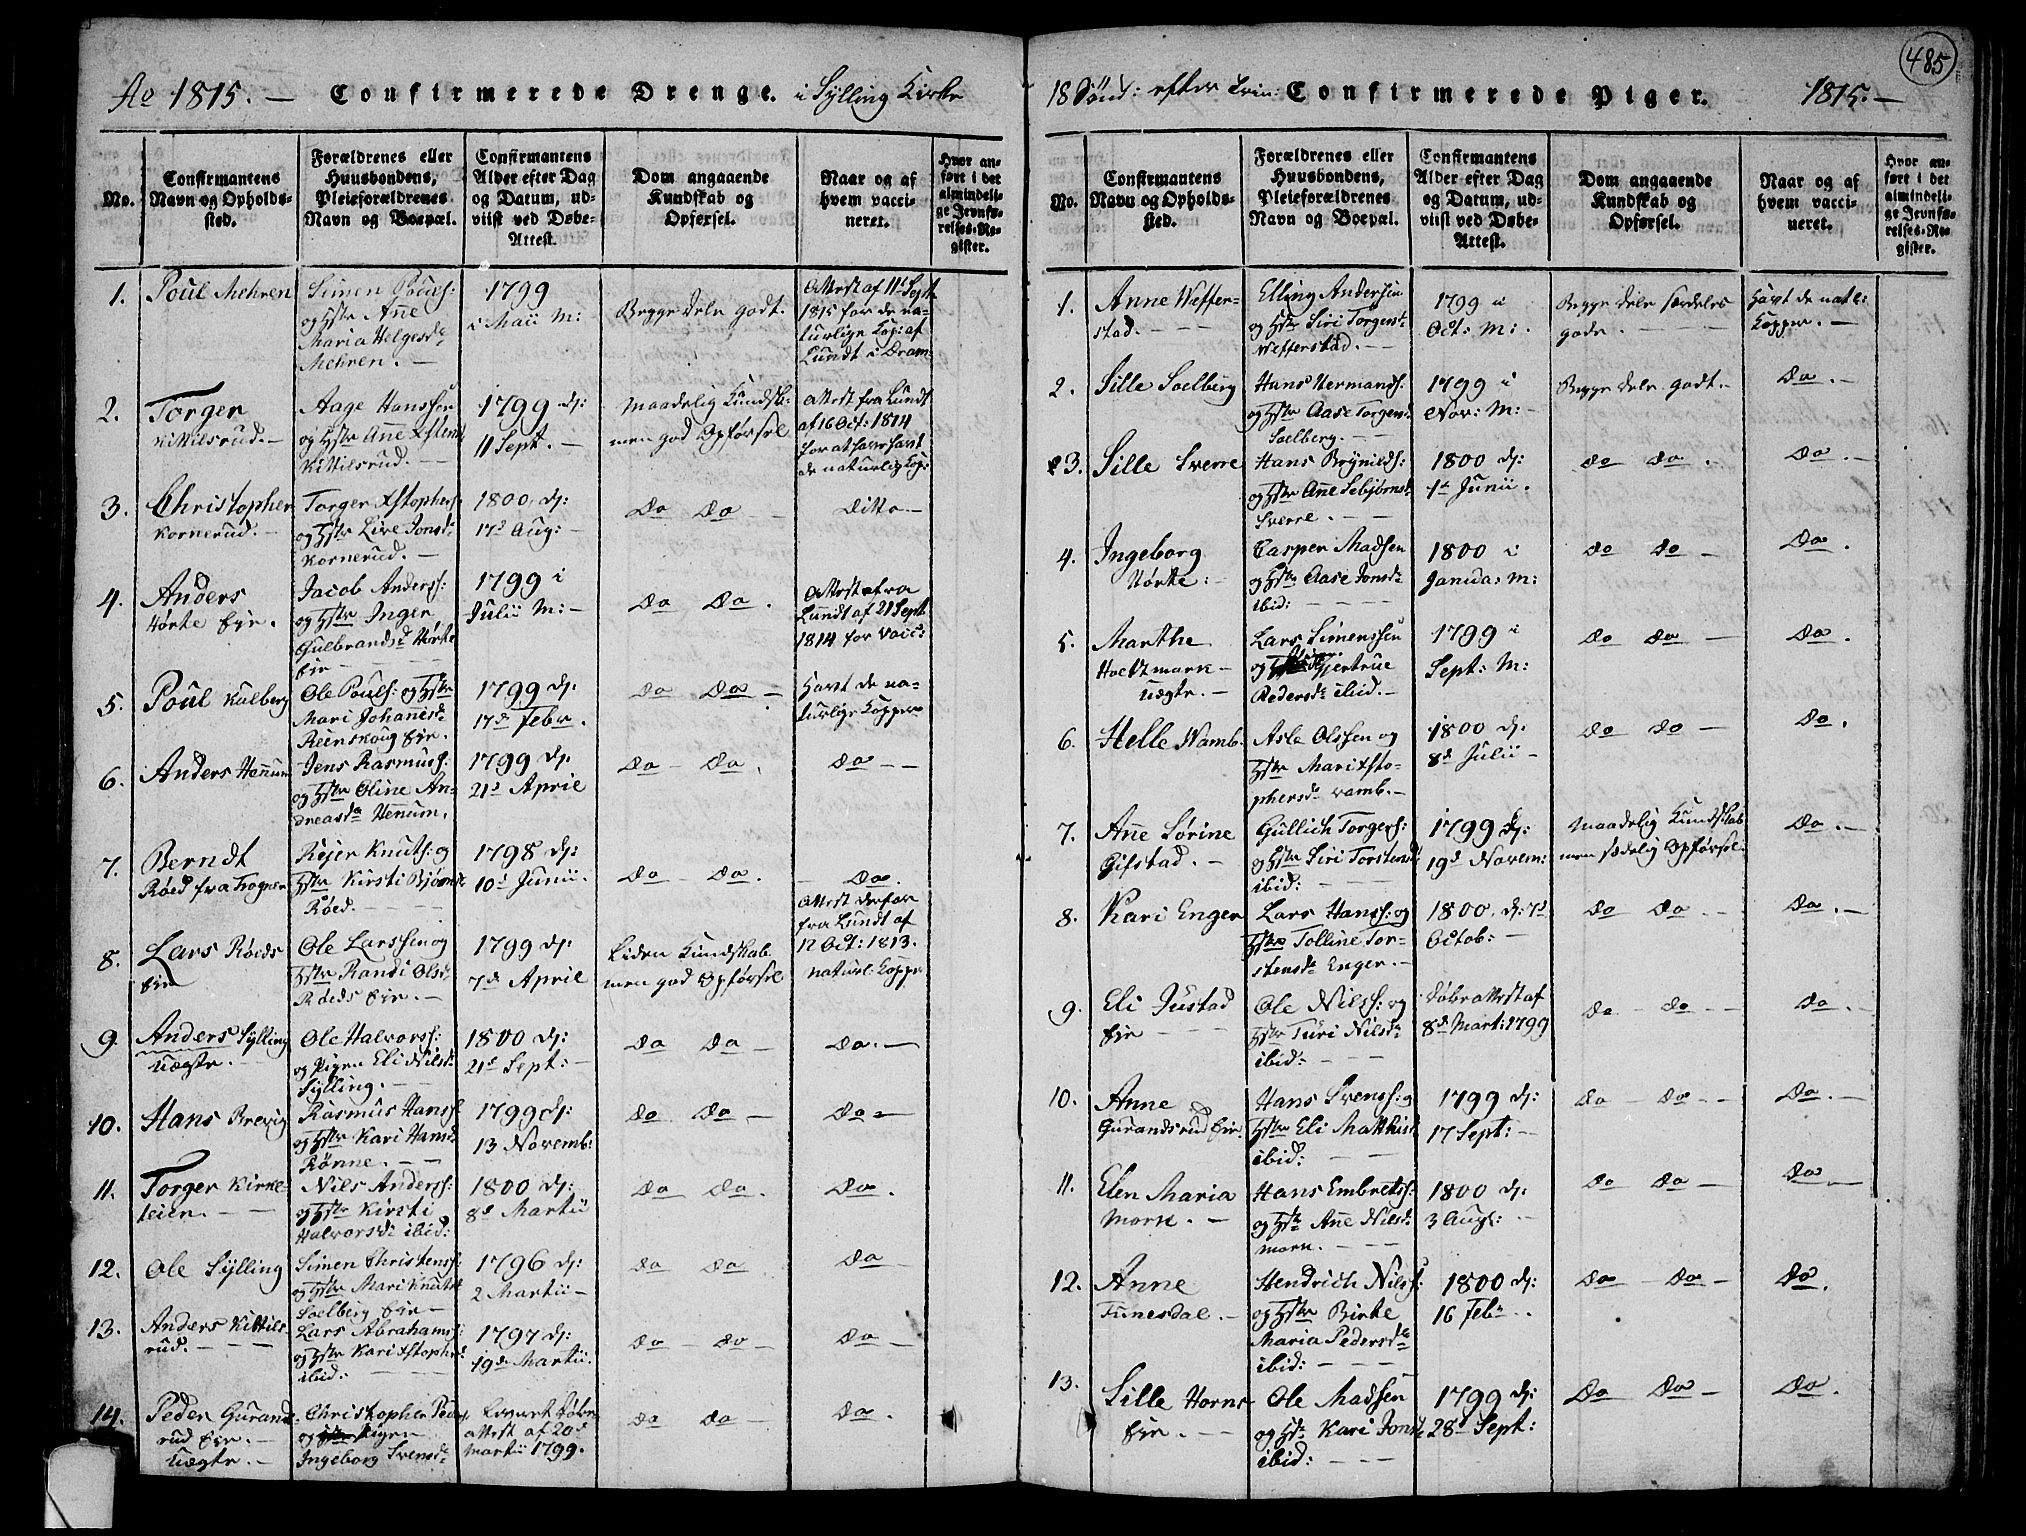 485
Ao 1815. — Confirmerede Drenge. i Sylling Kirke
No.
Confirmantens Navn og Opholds-sted.
Forældrenes eller Huusbondens, Pleieforældrenes Navn og Boepæl.
Confirmantens Alder efter Dag og Datum, ud-viist ved Døbe-Attest.
Dom angaaende Kundskab og Opførsel.
Naar og af hvem vacci-neret.
Hvor an-ført i det almindeli-ge Jevnfø-relses-Re-gister.
1. Poul Mehren
Simen Pouls:
og Hstr Añe
Maria Helgesd:
Mehren. —
1799
i Maii M:
Begge Dele godt.
Attest af 11t Sept:
1815 for de na-
turlige Kop: af
Lundt i Dram:
2. Torger
Kittilsrud. —
Aage Hanssen
og Hstr Añe
Kittilsrud. —
1799 d:
11 Sept. —
Maadelig Kundsk:
men god Opførsel
Attest fra Lundt
af 16 Oct: 1814
for at have havt
de naturlig Kop:
3. Christopher
Kornerud. —
Torger Xstophers:
og Hstr Live Jonsd:
Kornerud. —
1800. d:
17d Aug: —
Do Do —
Ditto —
4. Anders
Hørte Eje.
Jacob Anderss:
og Hstr Inger
Gulbrandsd Hørte
Eje —
1799 i
Julii M: —
Do Do.
Attest fra
Lundt af 21 Sept
1814 for Vacc:
5. Poul Kulberg
Ole Pouls: og Hstr
Mari Johanisd:
Reenskoug Eje.
1799 d:
17d Febr.
Do Do —
Havt de na-
turlige Kopper
6. Anders Heñum
Jens Rasmus:
og Hstr Oline An-
dreasd Heñum.
1799 d:
21d April
Do — Do.
Do — —
7. Berndt
Røed fra Frogner
Rejer Knuts: og
Hstr Kirsti Bjørnsd
Røed. —
1798 d:
10d Junii. —
Do — Do.
— Do.
8. Lars Røeds
Eje
Ole Larssen og
Hstr Randi Olsd:
Røeds Eje. —
1799 d:
7d April
Liden Kundskab
men god Opførsel
Attest derfor
fra Lundt af
12 Oct: 1813.
naturl: Kopper
9. Anders Sylling
Uægte. —
Ole Halvorss:
og Pigen Eli Nilsd:
Sylling. —
1800 d:
21d Sept: —
Do Do —
Do. —
10. Hans Brevig
Rasmus Hanss:
og Hstr Kari Hansd:
Rønne. —
1799 d:
13 Novemb:
Do Do —
Do —
11. Torger Kirke-
teien. —
Nils Anderss:
og Hstr Kirsti
Halvorsd: ibid:
1800 d:
8d Martii
Do Do.
Do.
12. Ole Sylling
Simen Christenss:
og Hstr Mari Knutsd
Soelberg Eje —
1796 d:
2 Martii —
Do Do
Do
13. Anders Kittils-
rud. —
Lars Abrahams:
og Hstr Kari Xstophd:
ibid: —
1797 d:
19d Martii.
Do — Do —
Do —
14. Peder Gurand-
rud Eje. —
Uægte. —
Christopher Peder:
og Pigen
Ingeborg Svensd:
Døbe
Attest af 20d
Martii 1799.
Do Do —
Do.
18 Sönd: efter Trin: Confirmerede Piger. 1815. —
No.
Confirmantens Navn og Opholds-sted.
Forældrenes eller Huusbondens, Pleieforældrenes Navn og Boepæl.
Confirmantens Alder efter Dag og Datum, ud-viist ved Døbe-Attest.
Dom angaaende Kundskab og Opførsel.
Naar og af hvem vacci-neret.
Hvor an-ført i det almindeli-ge Jevnfø-relses-Re-gister.
1. Anne Weffer-
stad. —
Elling Andersen
og Hstr Siri Torgersd:
Wefferstad. —
1799 i
Oct: M:
Begge Dele særdeles
gode. —
Havt de natl:
Kopper. —
2. Sille Soelberg
Hans Hermands:
og Hstr Aase Torgersd
Soelberg. —
1799 i
Nov: M: —
Begge Dele godt. —
Do. —
3. Sille Sverre
Hans Brynilds:
og Hstr Añe
Sverre. —
1800 d:
1d Junii.
Do Do. —
Do. —
4. Ingeborg
Hørte: —
Casper Madsen
og Hstr Aase Jonsd:
ibid: —
1800 i
Janua: M:
Do Do —
Do.
5. Marthe
Hoeltzmark —
Uægte. —
Lars Simenssen
og Gjertrue
Pedersd: ibid. —
1799 i
Sept: M:
Do Do —
Do.
6. Helle Wamb.
Asle Olssen og
Hstr Mari Xsto-
phersd Wamb. —
1800 d:
8d Julii —
Do Do —
Do.
7. Añe Sørine
Gifstad. —
Gullich Torgers:
og Hstr Siri Torstensd
ibid: —
1799 d:
19d Novem:
Maadelig Kundskab
men sædelig Opførsel.
Do. —
8. Kari Enger
Lars Hanss: og
Hstr Tolline Tor-
stensd Enger. —
1800. d: 7d
Octob: —
Do Do. —
Do. —
9. Eli Justad
Eje —
Ole Nilss: og
Hstr Turi Nilsd:
ibid: —
Døbeattest af
8d Mart: 1799
Do — Do —
Do
10. Anne
Gurandsrud Eje:
Hans Svenss: og
Hstr Eli Matthisd
ibid: —
1799 d:
17 Sept: —
Do — Do —
Do. —
11. Elen Maria
Mork. —
Hans Embretss:
og Hstr Añe Nilsd:
Mork. —
1800 d:
3 Aug: —
Do Do —
Do —
12. Anne
Tunesdal. —
Hendrich Nilss:
og Hstr Birte
Maria Pedersd
ibid: —
1800 d:
16 Feb. —
Do — Do —
Do.
13. Sille Horns-
Eje. —
Ole Madsen
og Hst: Kari Jonsd
ibid: —
1799 d:
28d Sept:
Do Do —
Do.